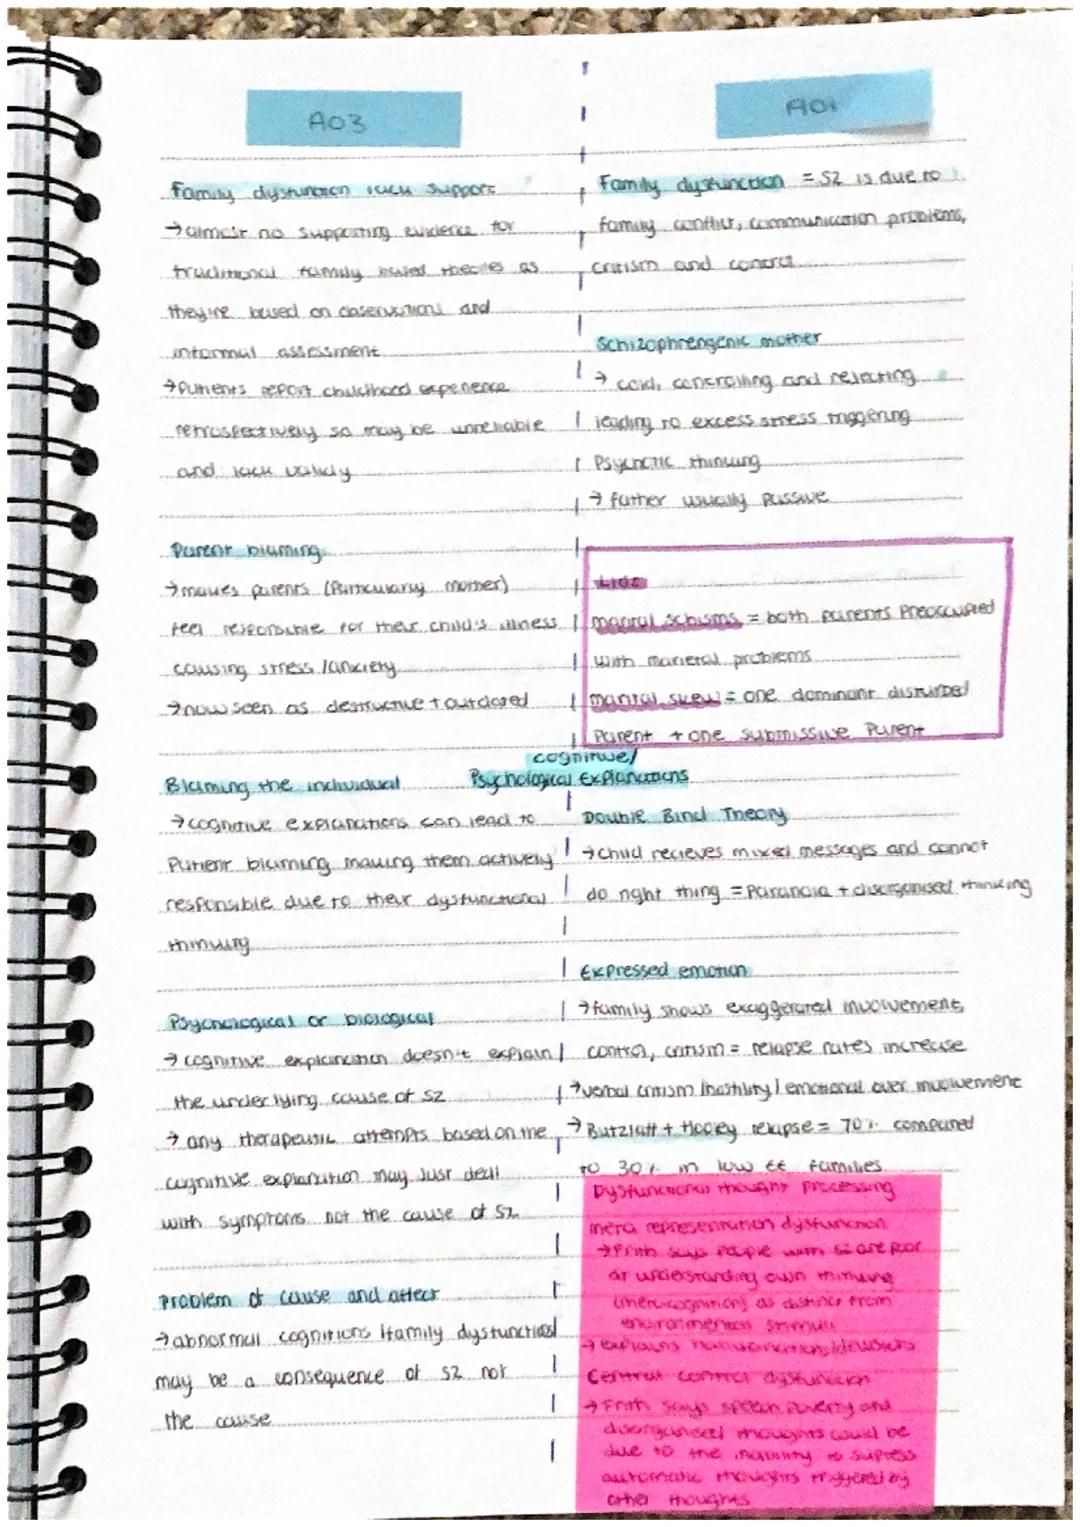 AO3
Family dysfunction lack support
→almost no supporting evidence for
traditional family based theories as
they're based on observations and
informal assessment
→Patients report childhood experience
retrospectively so may be unreliable
and lack validy
Parent blaming
→makes parents (Particularly mother)
feel responsible for their child's illness
causing stress /anxiety
→now seen as destructive + outdated
Blaming the individual
→cognitive explanations can lead to
Patient blaming making them actively
responsible due to their dysfunctional
thinking
Psychological or biological
→ cognitive explanation doesn't explain
the underlying cause of SZ
→ any therapeutic attempts based on the
cognitive explanation may just deal
with symptoms not the cause of SZ
Problem of cause and affect
→abnormal cognitions /family dysfunctional
may be a consequence of SZ not
the cause
AO1
Family dysfunction = SZ is due to
family conflict, communication problems,
critism and control
Schizophrengenic mother
→ cold, controlling and rejecting
leading to excess stress triggering
Psychotic thinking
→ father usually passive
Lidz
marital schisms = both parents Preoccupied
with marietal problems
marital skew = one dominant disturbed
Parent + one submissive Parent
cognitive/
Psychological Explanations
Double Bind Theory
→child recieves mixed messages and cannot
do right thing = Paranoia + disorganised thinking
Expressed emotion
→family shows exaggerated involvement,
control, critism = relapse rates increase
→verbal critism /hostility / emotional over involvement
→Butzlaff + Hooley relapse = 70% compared
to 30% in low EE families
Dysfunctional thought processing
meta representation dysfunction
→Frith says people with SZ are poor
at understanding own thinking
(meta-cognition) as distinct from
environmental stimuli
→ explains hallucinations/delusions
Central control dysfunction
→Frith says speech poverty and
disorganised thoughts could be
due to the inability to supress
automatic thoughts triggered by
other thoughts